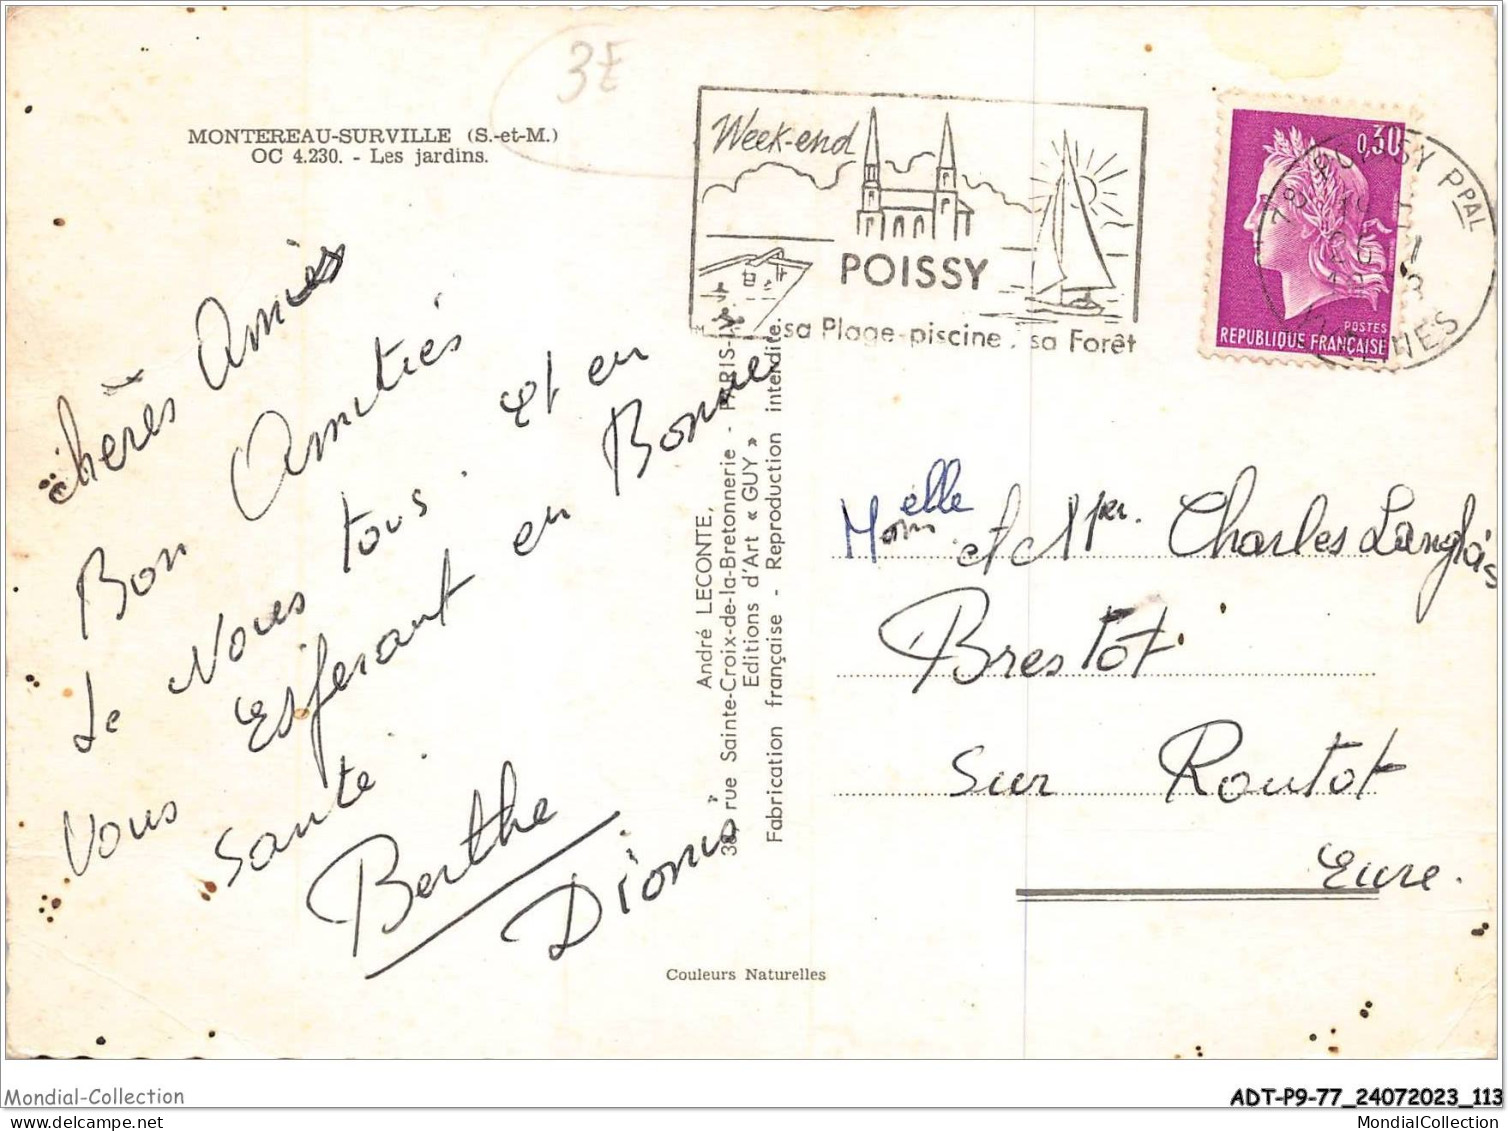 3€
MONTEREAU-SURVILLE (S.-et-M.)
OC 4.230. - Les jardins.
Week-end
POISSY
sa Plage-piscine, sa Forêt
0,30
POSTES
REPUBLIQUE FRANÇAISE
78 POISSY PPAL
YVELINES
chères Amies
Bon Amitiés
de Nous tous. et en
Vous Esferant en Bonne
santé.
Berthe
Dionis
André LECONTE,
38, rue Sainte-Croix-de-la-Bretonnerie - PARIS-IVe
Editions d'Art « GUY »
Fabrication française - Reproduction interdite.
Couleurs Naturelles
Melle et Mer. Charles Langlois
Brestot
sur Routot
Eure.
Mondial-Collection
ADT-P9-77_24072023_113
MondialCollection